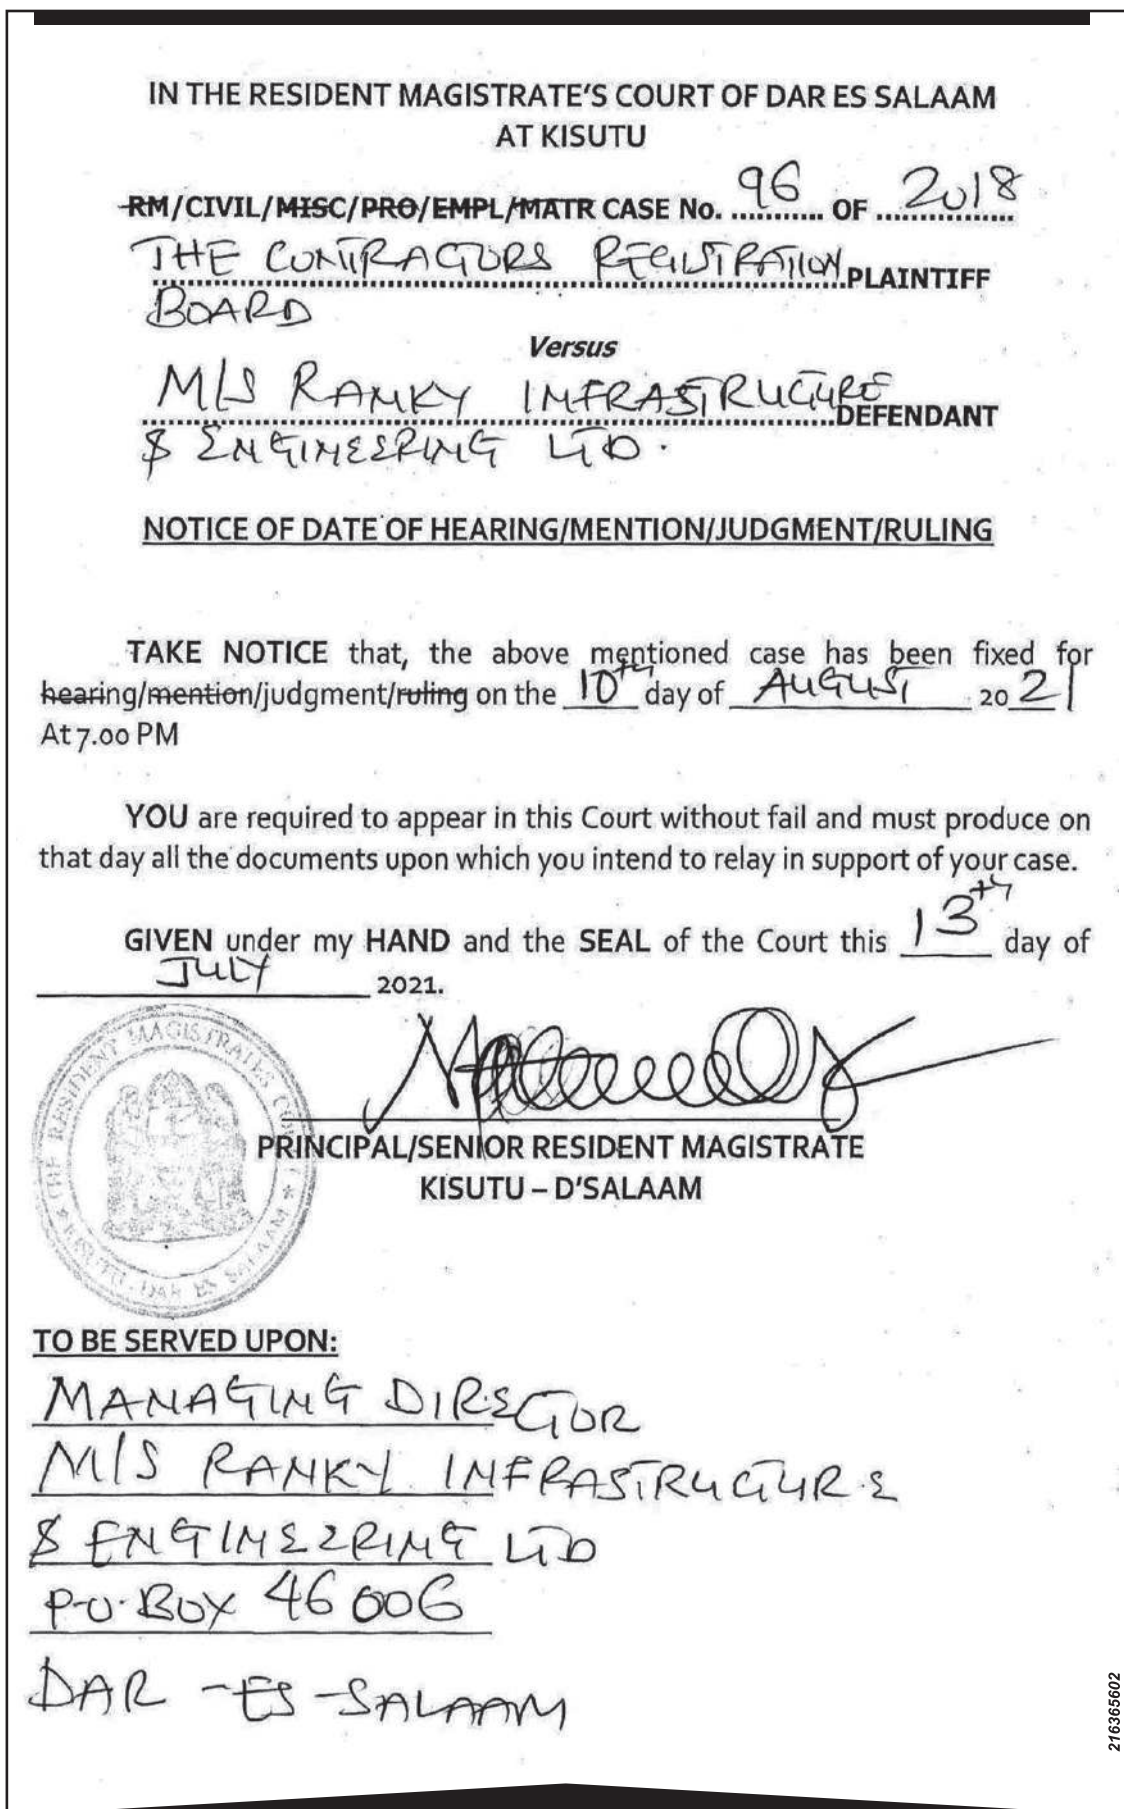 IN THE RESIDENT MAGISTRATE'S COURT OF DAR ES SALAAM
AT KISUTU
RM/CIVIL/MISC/PRO/EMPL/MATR CASE No. 96 OF 2018
THE CONTRACTORS REGISTRATION PLAINTIFF
BOARD
Versus
M/S RANKY INFRASTRUCTURE DEFENDANT
& ENGINEERING LTD.
NOTICE OF DATE OF HEARING/MENTION/JUDGMENT/RULING
TAKE NOTICE that, the above mentioned case has been fixed for
hearing/mention/judgment/ruling on the 10th day of AUGUST 2021
At 7.00 PM
YOU are required to appear in this Court without fail and must produce on
that day all the documents upon which you intend to relay in support of your case.
GIVEN under my HAND and the SEAL of the Court this 13th day of
JULY 2021.
THE RESIDENT MAGISTRATES COURT
* KISUTU - DAR ES SALAAM *
PRINCIPAL/SENIOR RESIDENT MAGISTRATE
KISUTU – D'SALAAM
TO BE SERVED UPON:
MANAGING DIRECTOR
M/S RANKY INFRASTRUCTURE
& ENGINEERING LTD
P.O. BOX 46006
DAR-ES-SALAAM
216365602